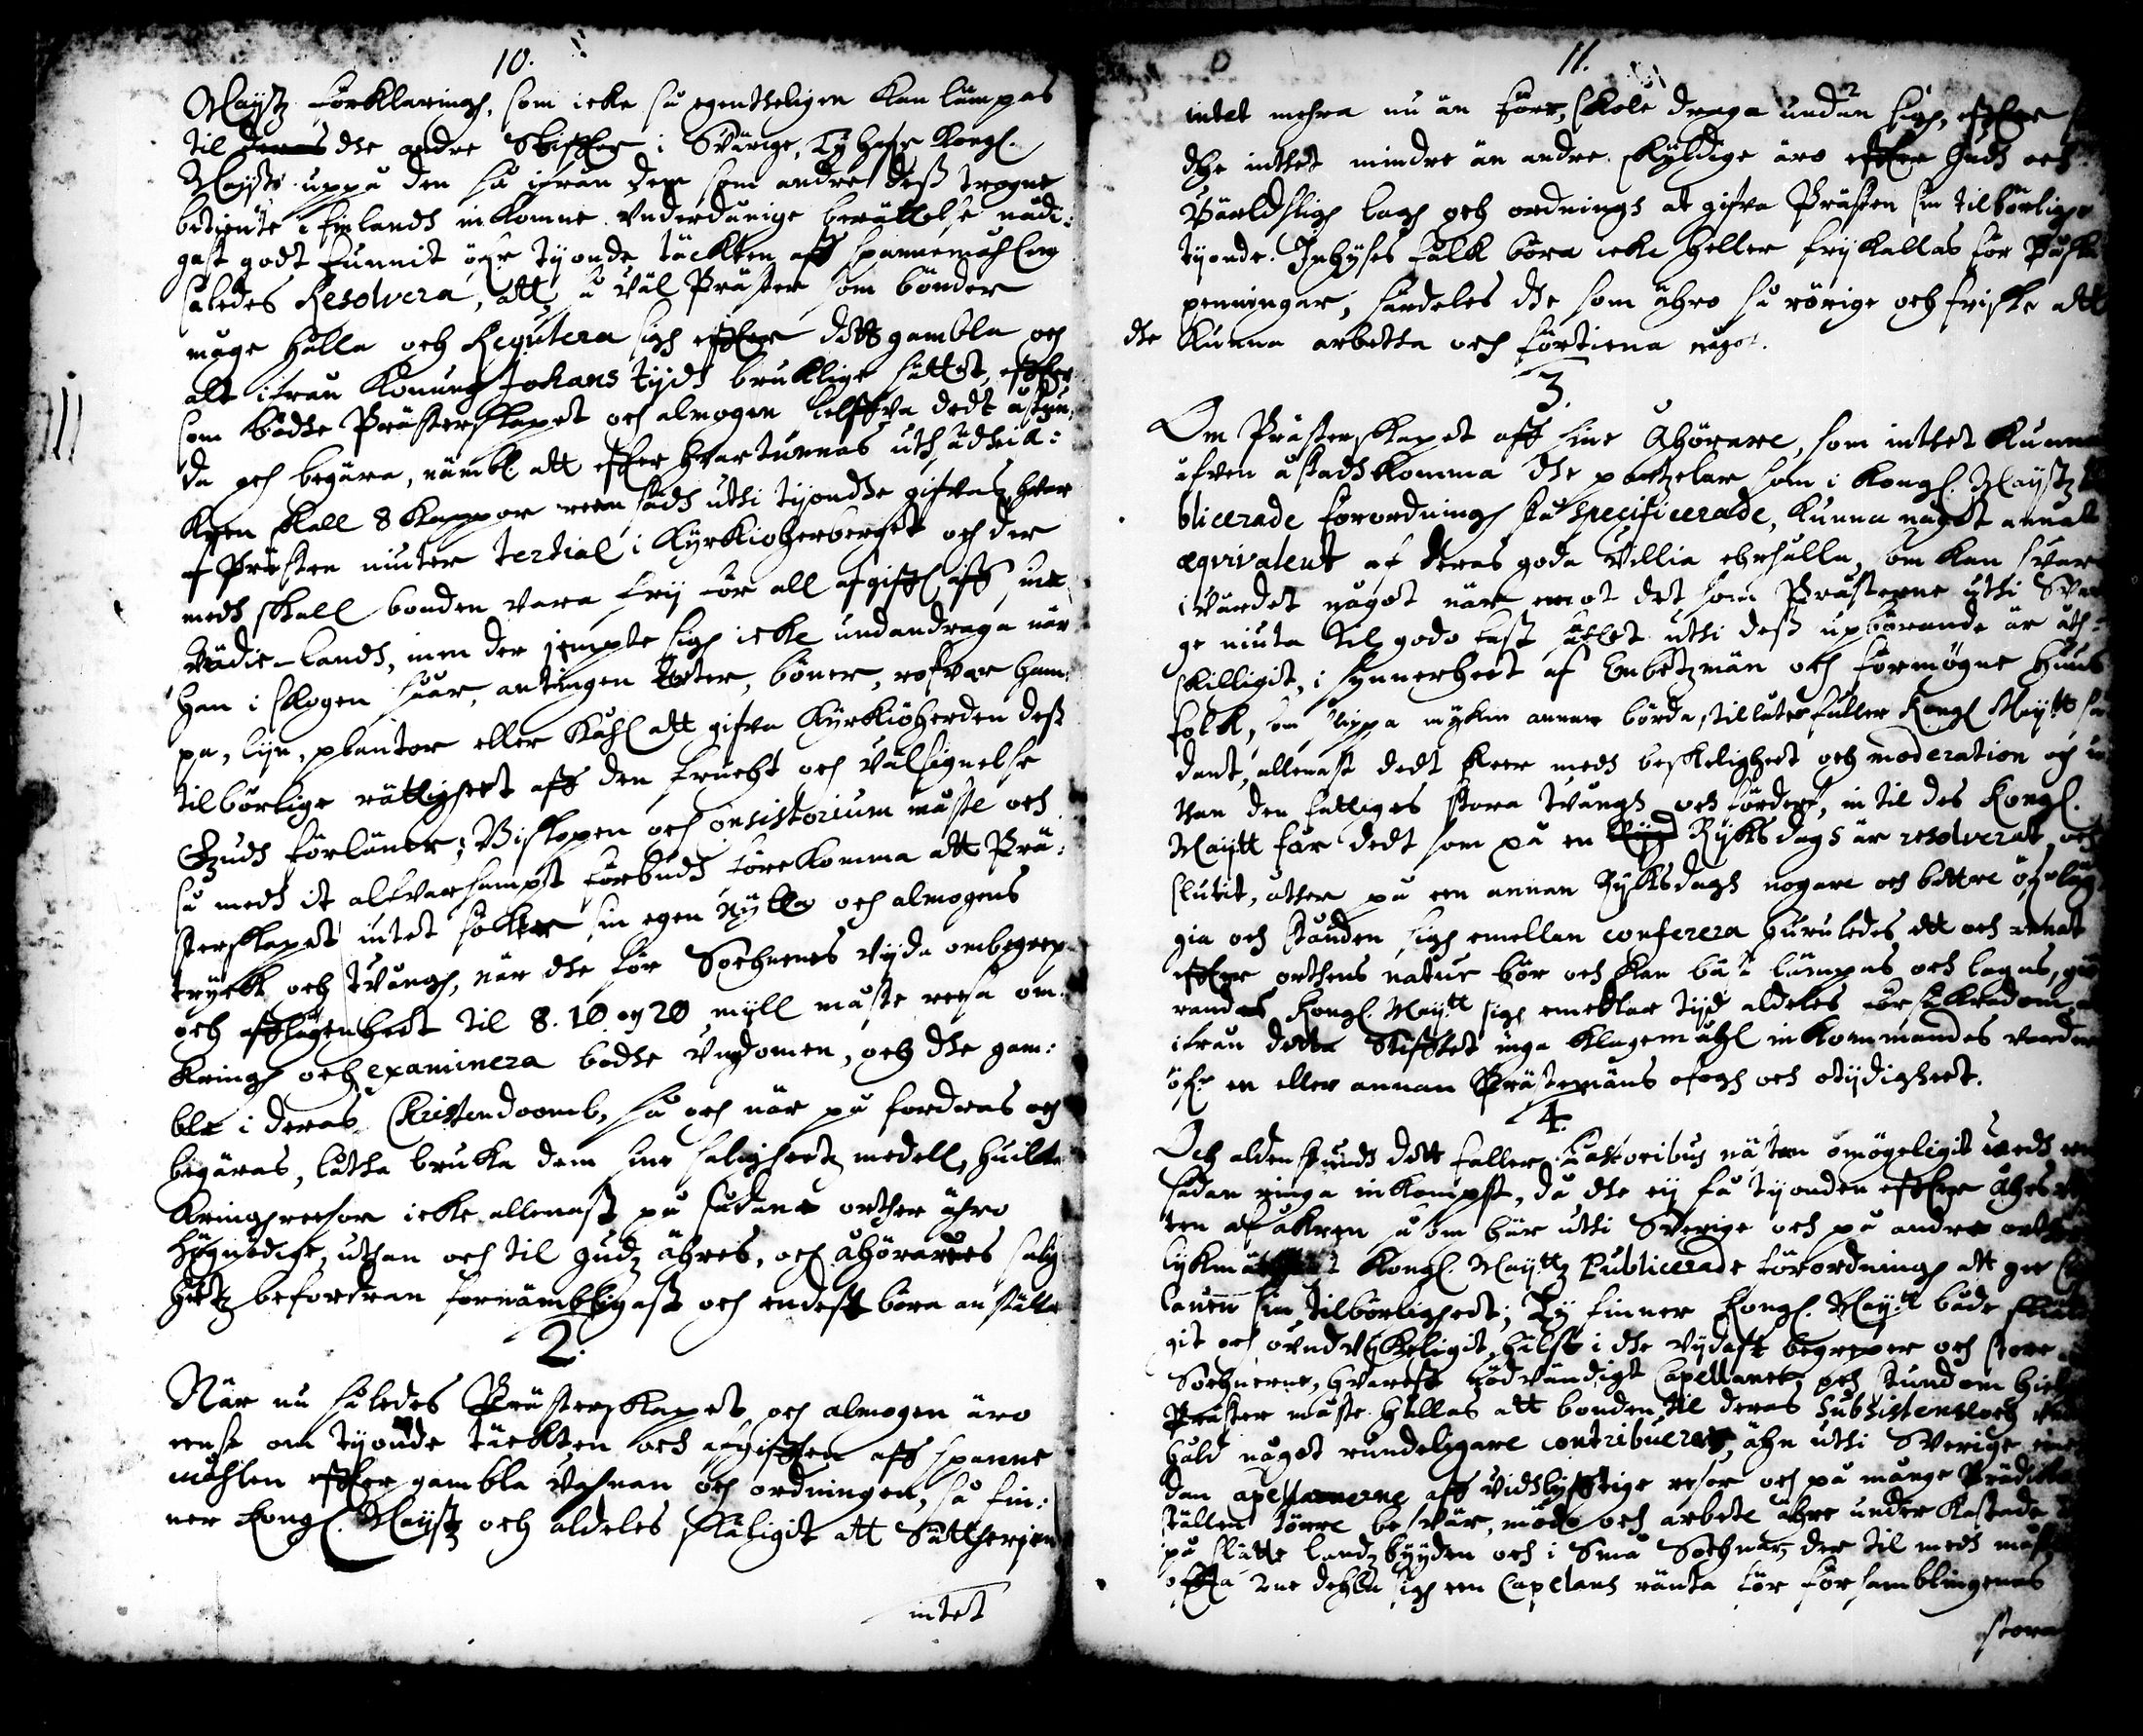 10.
Maystz förklaringh, som icke så egentheligen kan lämpas
til deras dhe andre Stiffter i Swärige, Ty hafr Kongl.
Maystt uppå den så ifrån dem som andre dess trogne
betiente i finlandh inkomne underdånige berättelse nådi:
gast godt funnit öfr tyonde täckten aff spannemåhlen
således Resolvera, att så väl Präster som bönder
måge hålla och Regulera sigh effter dett gambla och
alt ifrån Konung Johans tijdh bruklige sättet, effter
som bådhe Prästerskapet och almogen sielffva dedt åstun:
da och begära, nämbl att effter hvar tunnas uthsädhe i å:
kren skall 8 kappor reen sädh uthi tijondhe gifvas, hvar
af Prästen niuter tertial i Kyrkioherberget och der
medh skall bonden vara frij för all afgifft aff
Swedie-landh, men der jempte sigh icke undandraga när
han i skogen såår, antingen ärter, böner, rofvor ham:
pa, lijn, plantor eller kåhl att gifva Kyrkioherden dess
tilbörlige rättigheet aff den frucht och välsignelse
Gudh förläner; Biskopen och Consistorium måste och
så medh it alfvarsampt förbudh förekomma att Prä:
sterskapet intet söker sin egen nytta och almogens
tryck och tvångh, när dhe för Sochnenes vijda ombegrep
och afflägenheet til 8. 10 og 20 myll måste reesa om:
kringh och examinera bådhe Ungdomen, och dhe gam:
ble i deras Christendoomb, så och när på fordras och
begäras, låtha bruka dem sine saligheetz medell, huilka
kringhreesor icke allenast på sådane orther ähro
högnödige, uthan och til Gudz ähres, och åhörarnes salig
hetz befordran förnämbligast och endest böra anställas
2.
När nu således Prästerskapet och almogen äro
eense om tyonde täckten och afgifften aff spanne
måhlen effter gambla vahnan och ordningen, så fin:
ner Kongl. Maystz och aldeles skäligit att Sätherien
intet
11.
intet mehra nu än förr, skole draga undan sigh, effter
dhe inthet mindre än andre skyldige äro effter Gudh och
Wärldsligh lagh och ordningh at gifva Prästen sin tilbörlige
tyonde. Inhyses folk böra icke heller frij kallas för Påska
penningar, särdeles dhe som ähro så rörige och friske att
dhe kunna arbetha och förtiena något.
3.
Om Prästerskapet aff sine Åhörare, som inthet kunna
äfven åstadhkomma dhe partzelar som i Kongl. Maystz
blicerade förordningh stå specificerade, kunna något annat
æqvivalent af deras goda villia ehrhålla, som kan svar
i värdet något när emot det som Prästerne uthi Sve
ge niuta til godo fast åhret uthi dess upbörande är åth:
skilligit, i synnerheet af Embetzmän och förmögne huus
folk, som slippa mykin annan börda, tillåter fuller Kongl. Maytt så
dant, allenast dedt skeer medh beskeligheet och moderation och u
than den fattiges stora tvångh och förderf, in til des Kongl.
Maytt får dedt som på en Ryksdagh är resolverat och
slutit, åther på een annan Ryksdagh nogare och bättre öfwerläg
gia och Stånden sigh emellan conferera huruledes ett och annat
effter orthens natur bör och kan bäst lämpas och lagas,
randes Kongl. Maytt sigh emedlar tijd aldeles försäkrad om,
ifrån detta Stifftet inga klagemåhl inkommandes varder
öfr en eller annan Prästemans ofogh och otijdigheet.
4.
Och aldenstundh dett faller Pastoribus nästan omögeligit wedh een
sådan ringa inkompst, då dhe eij få tyonden effter åhrs
ten af åkren såsom här uthi Swerige och på andre orther
lykmätigt Kongl. Mayttz Publicerade förordningh att gee Cap
lanen sin tilbörligheet; Ty finner Kongl. Maytt både skäli
git och oundvykeligit, hälst i dhe vydaste begreper och store
Sochnerne, hvarest nödvändigt Capellaner och stundom hielp
Präster måste hållas att bonden til deras Subsistens och under
håld något rundeligare contribuerer, ähn uthi Swerige,
dan Capellanerne aff vidhlyfftige resor och på månge Prädike
ställen större besvär, möda och arbete ähre underkastade
på slätte landzbygden och i små Sochnar, der til medh måste
offta 2ne dehla sigh een Capelans ränta för församblingenes
stora